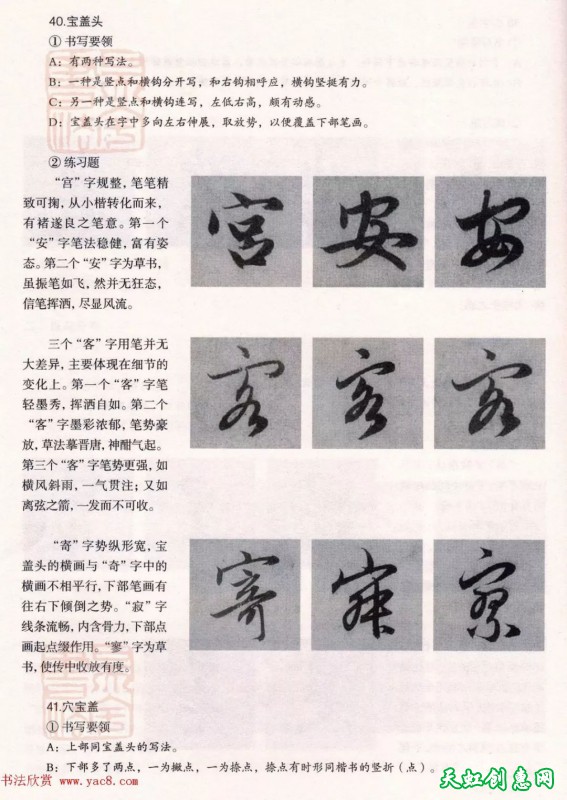 40.宝盖头
① 书写要领
A：有两种写法。
B：一种是竖点和横钩分开写，和右钩相呼应，横钩坚挺有力。
C：另一种是竖点和横钩连写，左低右高，颇有动感。
D：宝盖头在字中多向左右伸展，取放势，以便覆盖下部笔画。
② 练习题
“宫”字规整，笔笔精
致可掬，从小楷转化而来，
有褚遂良之笔意。第一个
“安”字笔法稳健，富有姿
态。第二个“安”字为草书，
虽振笔如飞，然并无狂态，
信笔挥洒，尽显风流。
宫 安 安
三个“客”字用笔并无
大差异，主要体现在细节的
变化上。第一个“客”字笔
轻墨秀，挥洒自如。第二个
“客”字墨彩浓郁，笔势豪
放，草法摹晋唐，神酣气起。
第三个“客”字笔势更强，如
横风斜雨，一气贯注；又如
离弦之箭，一发而不可收。
客 客 客
“寄”字势纵形宽，宝
盖头的横画与“奇”字中的
横画不相平行，下部笔画有
往右下倾倒之势。“寂”字
线条流畅，内含骨力，下部点
画起点缀作用。“寥”字为草
书，使传中收放有度。
寄
41.穴宝盖
① 书写要领
A：上部同宝盖头的写法。
B：下部多了两点，一为撇点，一为捺点，捺点有时形同楷书的竖折（点）。
书法欣赏 www.yac8.com
天虹创意网